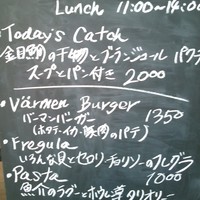 Lunch 11:00~14:00
・Today's Catch
金目鯛の干物とブランジュール パクチ
スープとパン付き 2000
・Värmen Burger
バーマンバーガー 1350
(ホタテ・イカ・豚肉のパテ)
・Fregula
いろんな貝とセロリ チョリソーのフレグラ
・Pasta 1000
魚介のラグーとホウレン草 タリオリー